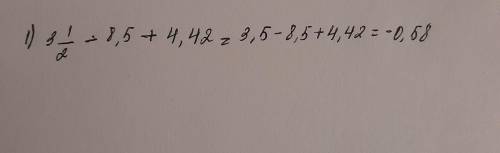 1) 3 1/2 - 8,5 + 4,42 = 3,5 - 8,5 + 4,42 = -0,58